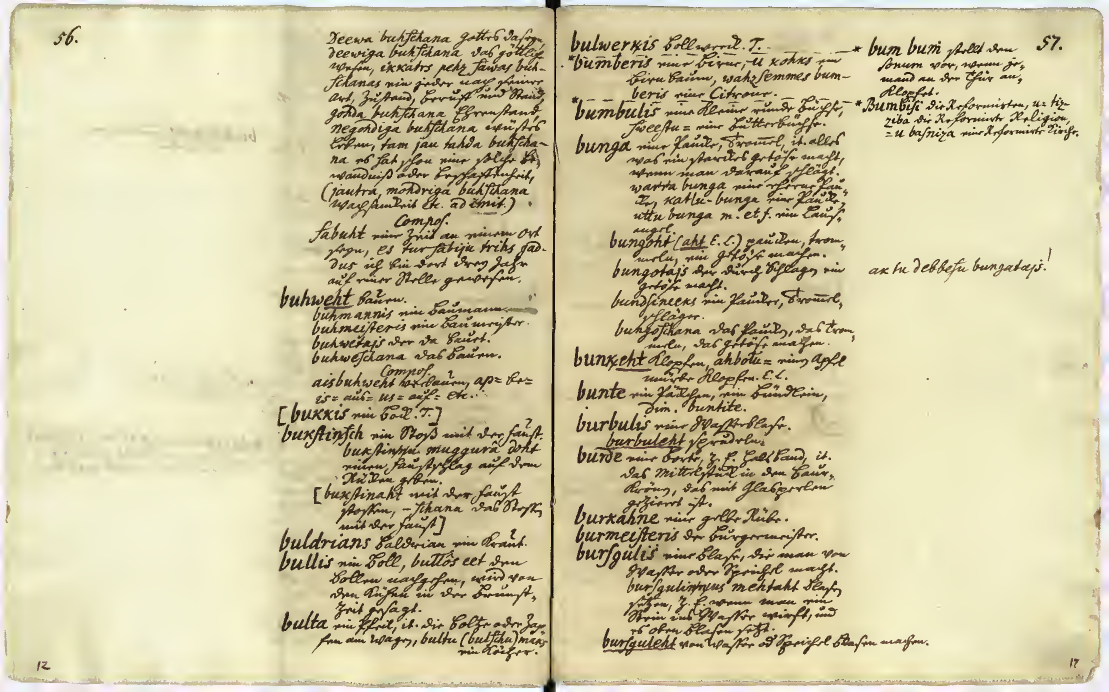 56.
Deewa buhschana Gottes daseyn
deewiga buhschana das göttliche
wesen, ikkatrs pehz sawas buh-
schanas ein jeder nach seiner
Art, Zustand, beruff und Stand
gohda buhschana Ehrenstand
negohdiga buhschana wüstes
Leben, tam jau tahda buhscha-
na es hat schon eine solche be-
wandniß oder beschaffenheit,
(jautra, mohdriga buhschana
Wachsamkeit etc. ad emit.)
Compos.
sabuht eine Zeit an einem Ort
seyn, es tur sabiju trihs gad-
dus ich bin dort drey Jahr
auf einer Stelle gewesen.
buhweht bauen.
buhmannis ein Baumann
buhmeisteris ein Baumeister.
buhwetajs der da bauet.
buhweschana das bauen.
Compos.
aisbuhweht verbauen, ap= be=
is= aus= us= auf= etc.
[bukkis ein bock. T.]
bukstinsch ein Stoß mit der faust.
bukstinu muggurâ doht
einen faustschlag auf dem
Rücken geben.
[bukstinaht mit der faust
stossen, -schana das Stossen
mit der faust]
buldrians baldrian ein Kraut.
bullis ein boll, bullôs eet den
bollen nachgehen, wird von
den Kühen in der brunst-
Zeit gesagt.
bulta ein Pfeil, it. die bolte oder Zap
fen am Wagen, bultu (bultschu) maks
ein Köcher.
12
57.
bulwerkis bollwerck. T.
*bumberis eine birne, -u kohks ein
birnbaum, wahzsemmes bum-
beris eine Citrone.
*bumbulis eine kleine runde büchse,
sweestu= eine butterbüchse.
bunga eine Paucke, Trommel, it. alles
was ein starckes getöse macht,
wenn man darauf schlägt.
warra bunga eine eherne Pau-
cke, katlu-bunga eine Paucke,
uttu bunga m. et f. ein Lause-
angel.
bungoht (aht E. L.) paucken, trom-
meln, ein getöse machen.
bungotajs der durch Schlagen ein
getöse macht.
bundsineeks ein Paucker, Trommel-
schläger.
bungoschana das Paucken, das trom-
meln, das getöse machen.
bunkeht klopfen, ahbolu= einen Apfel
mürbe klopfen. E. L.
bunte ein Päckchen, ein bündlein,
Dim. buntite.
burbulis eine Wasserblase.
burbuleht sprudeln.
burde eine borte, z. E. halsband, it.
das Mittelstück in den baur-
Kronen, das mit Glasperlen
gezieret ist.
burkahne eine gelbe Rübe.
burmeisteris der bürgermeister.
bursgulis eine blase, die man von
Wasser oder Speichel macht.
bursgulinnus mehtaht blasen
setzen, z. E. wenn man einen
Stein ins Wasser wirft, und
es oben blasen setzt.
bursguleht von Wasser od Speichel blasen machen.
* bum bum stellt den
sonum vor, wenn je-
mand an der thür an-
klopfet.
* Bumbisi die Reformirten, u= tiz-
ziba die Reformirte Religion,
=u basniza eine Reformirte Kirche.
ak tu debbesu bungatajs!
17